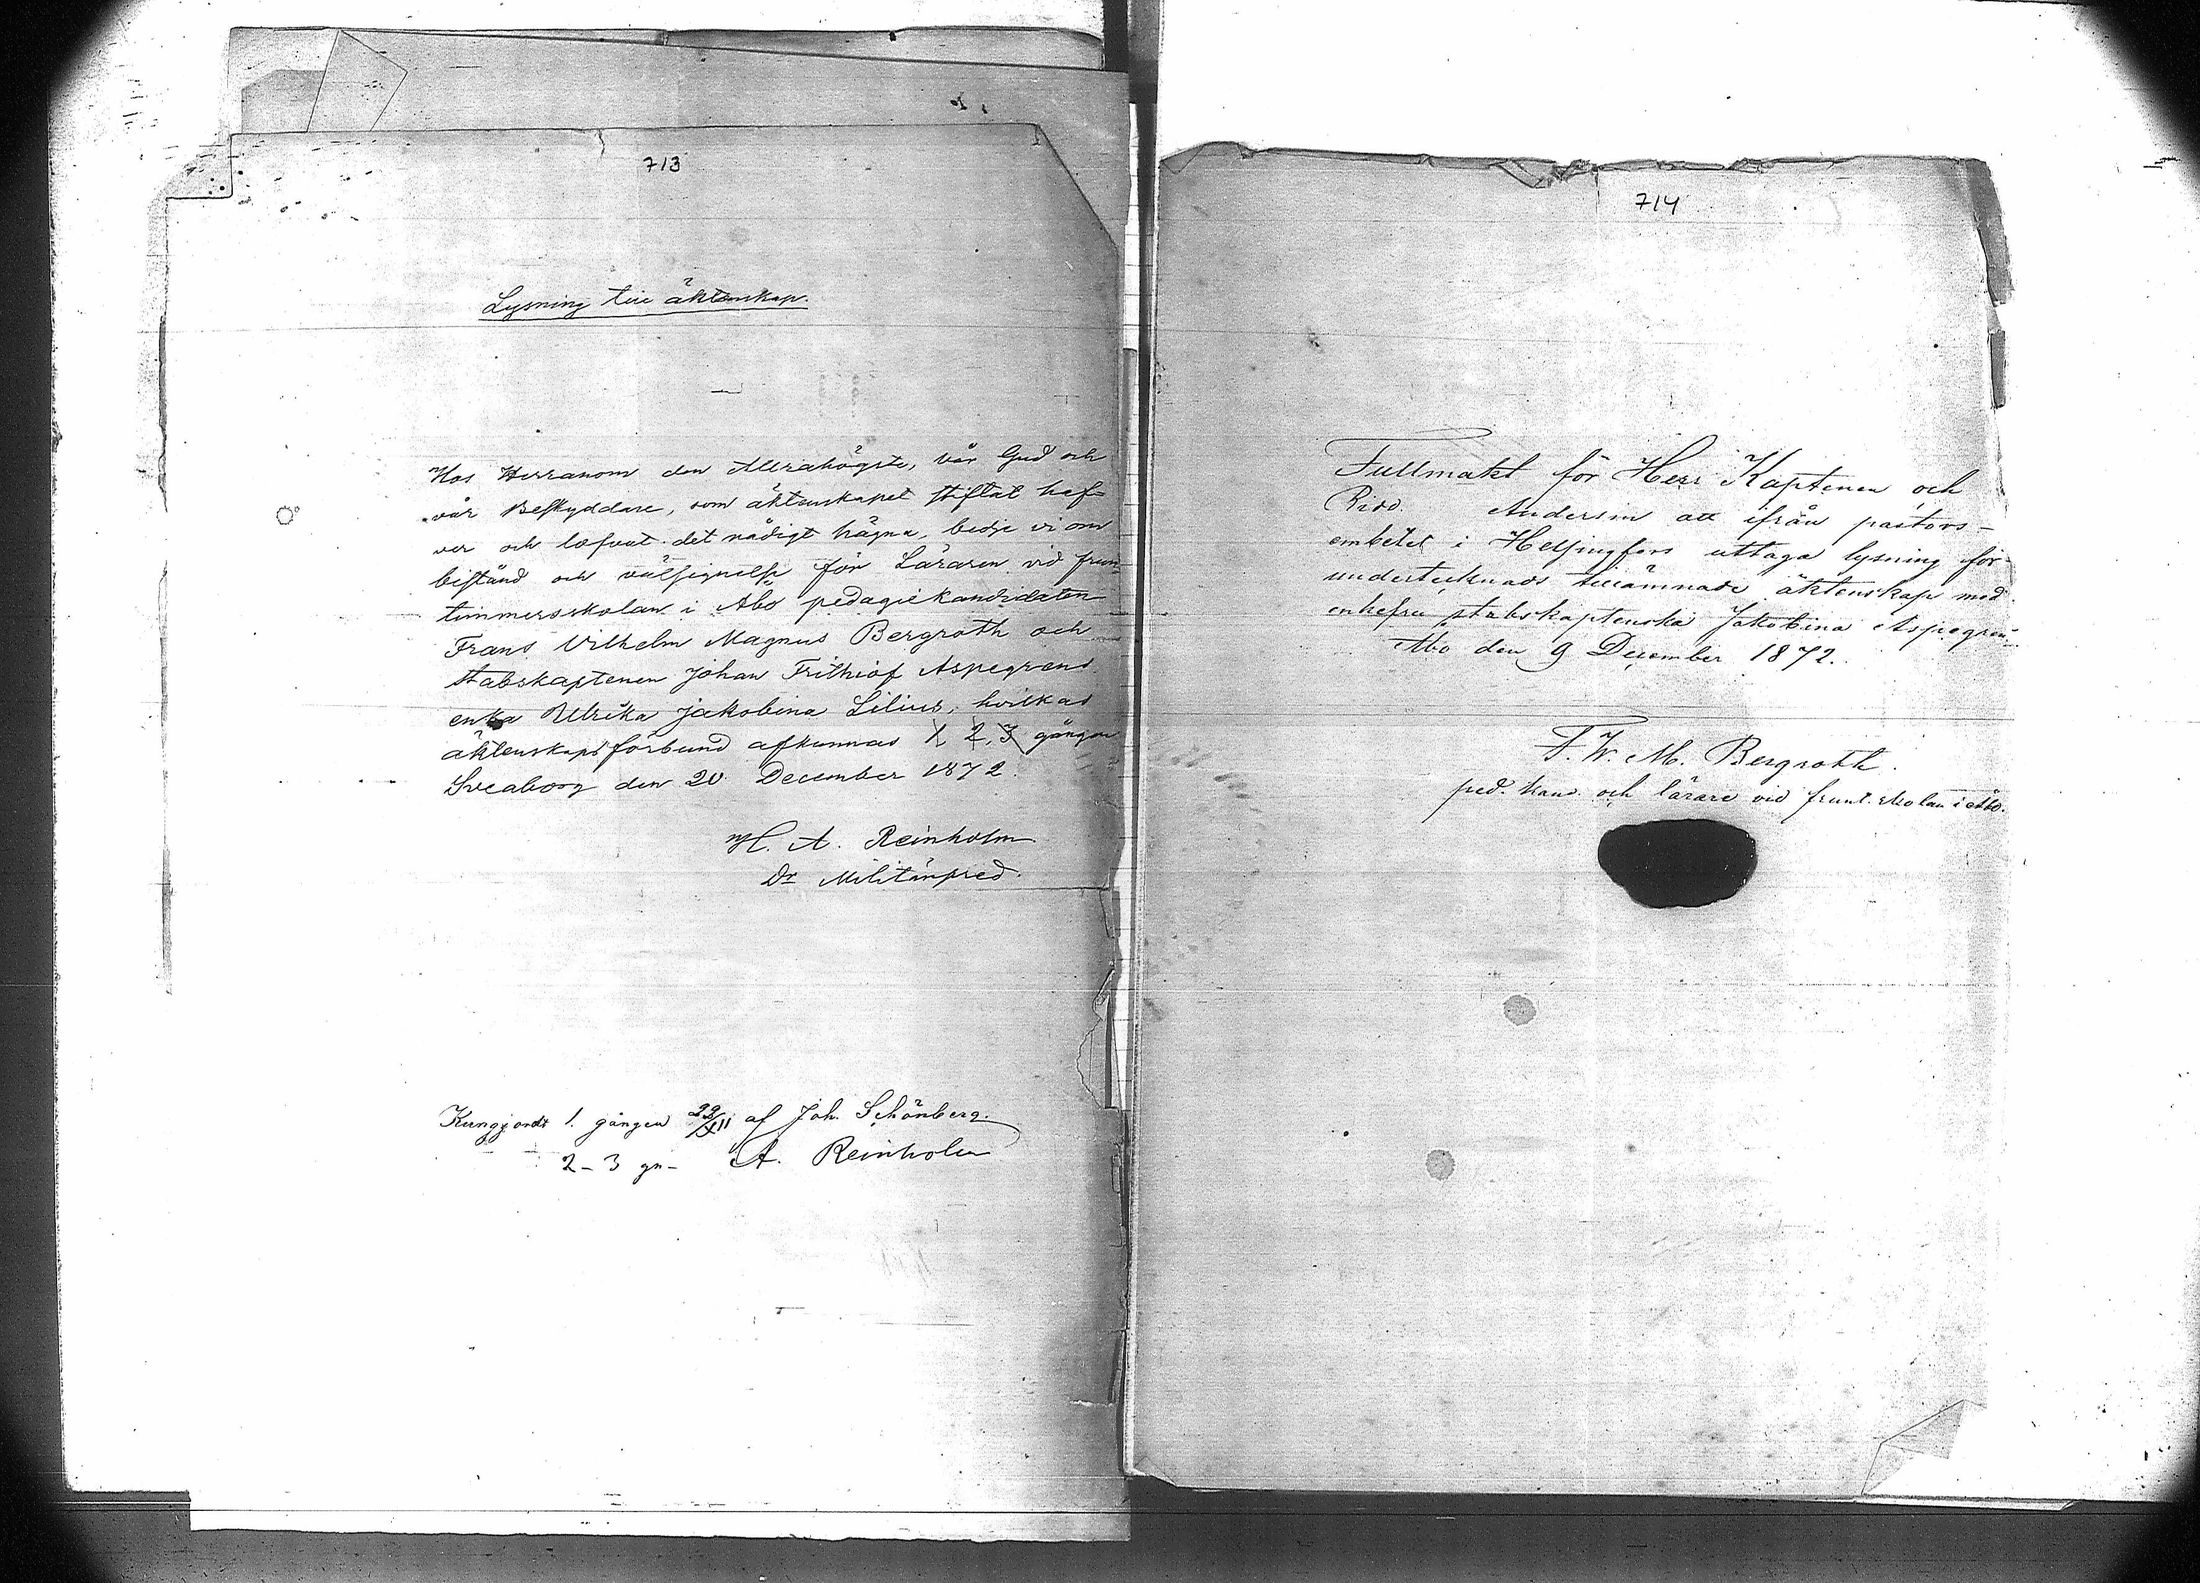 713
Lysning till äktenskap.
Hos Herranom den Allrahögste, vår Gud och
vår Beskyddare, som äktenskapet stiftat haf-
ver och lofvat det nådigt hägna, bedje vi om
bistånd och välsignelse för Läraren vid frun-
timmersskolan i Åbo pedagiekandidaten
Frans Vilhelm Magnus Bergroth och
stabskaptenen Johan Frithiof Aspegrens
enka Ulrika Jakobina Lilius, hvilkas
äktenskapsförbund afkunnas 1, 2, 3 gången
Sveaborg den 20 December 1872.
H. A. Reinholm
Dr Militärpred.
Kungjordt 1. gången 22/XII af Joh. Schönberg.
2 - 3 gn - A. Reinholm
714
Fullmakt för Herr Kaptenen och
Ridd. Andersin att ifrån pastors-
embetet i Helsingfors uttaga lysning för
undertecknads tillämnade äktenskap med
enkefru stabskaptenska Jakobina Aspegren.
Åbo den 9 December 1872.
F. W. M. Bergroth.
ped. kand. och lärare vid frunt. skolan i Åbo.